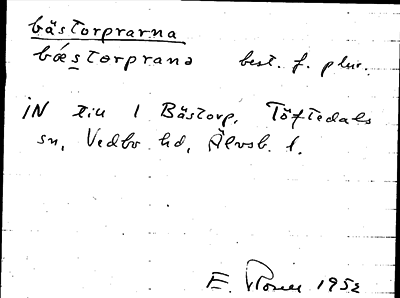 bästorprarna
bǽstorprana best. f. plur.
iN till 1 Bästorp, Töftedals
sn, Vedbo hd, Älvsb. l.
E. 1952